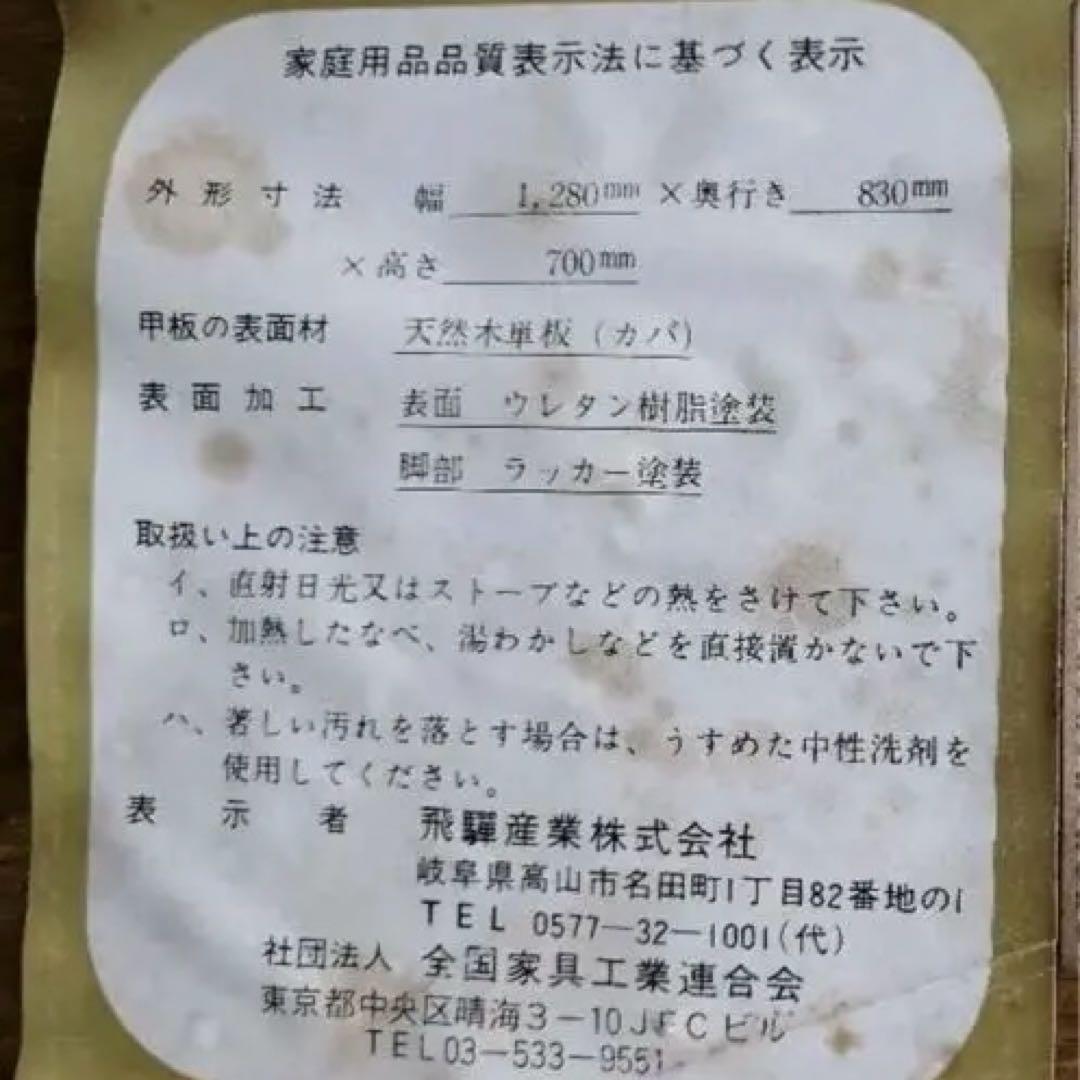 家庭用品品質表示法に基づく表示
外形寸法 幅 1,280mm ×奥行き 830mm
×高さ 700mm
甲板の表面材 天然木単板(カバ)
表面加工 表面 ウレタン樹脂塗装
脚部 ラッカー塗装
取扱い上の注意
イ、直射日光又はストーブなどの熱をさけて下さい。
ロ、加熱したなべ、湯わかしなどを直接置かないで下
さい。
ハ、著しい汚れを落とす場合は、うすめた中性洗剤を
使用してください。
表示者 飛驒産業株式会社
岐阜県高山市名田町1丁目82番地の1
TEL 0577-32-1001(代)
社団法人 全国家具工業連合会
東京都中央区晴海3-10JFCビル
TEL03-533-9551